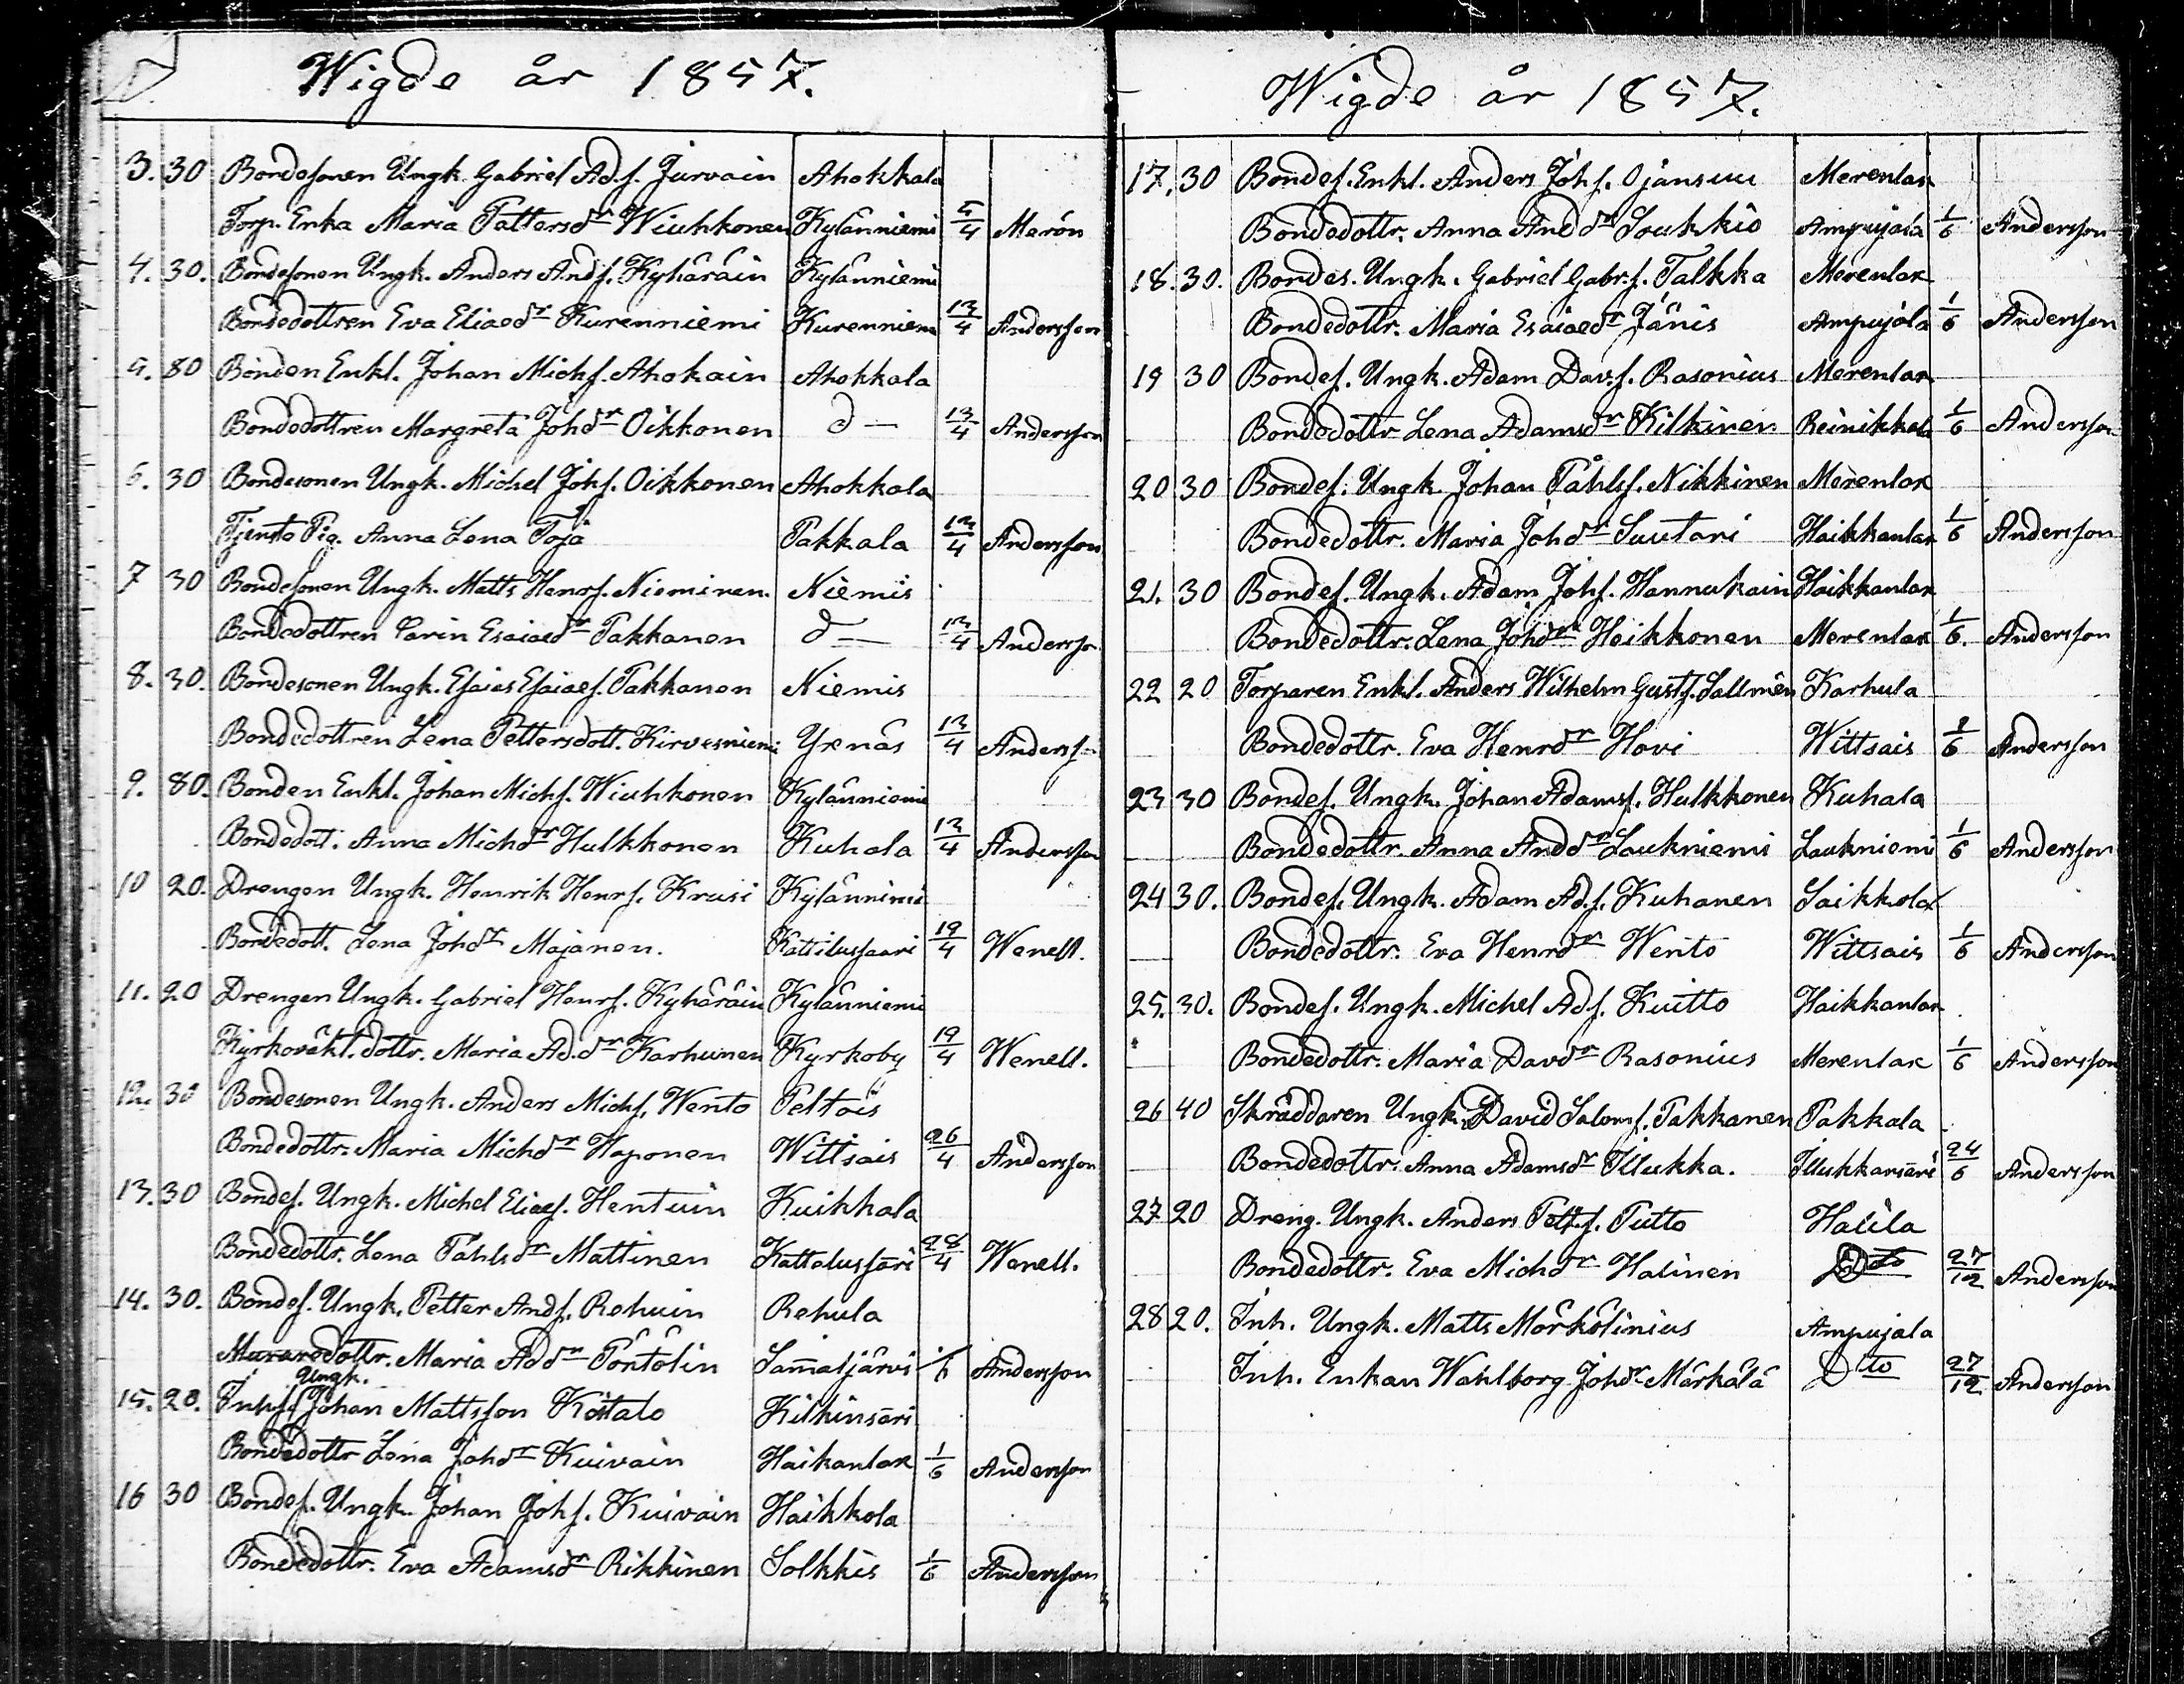 Wigde år 1857.
3. 30 Bondesonen Ungk. Gabriel Ad.s. Jurvain Ahokkala
Torp. Enka Maria Pettersdr Wiuhkonen Kylänniemi 5/4 Merón
4. 30. Bondesonen Ungk. Anders Ands. Kyhäräin Kylänniemi
Bondedottren Eva Eliaedr Kurenniemi Kurenniemi 13/4 Andersson
5. 80 Bonden Enkl. Johan Michs. Ahokain Ahokkala
Bondedottren Margreta Johdr Oikkonen d— 13/4 Andersson
6. 30 Bondesonen Ungk. Michel Johs. Oikkonen Ahokkala
Tjensto Pig. Anna Lena Toja Pakkala 13/4 Andersson
7 30 Bondesonen Ungk. Matts Henrs. Nieminen. Niemis
Bondedottren Carin Esaiaedr Pakkanen d— 13/4 Andersso
8. 30. Bondesonen Ungk. Esaias Esaiaes. Pakkanen Niemis
Bondedottren Lena Pettersdott. Kirvesniemi Yxnäs 13/4 Anderss
9. 80. Bonden Enkl. Johan Michs. Wiuhkonen Kylänniemi
Bondedott. Anna Michdr Hulkkonen Kuhala 13/4 Andersson
10 20. Drengen Ungk. Henrik Henrs. Krusi Kylänniemi
Bondedott. Lena Johdr Majanen. Kattilussaari 19/4 Wenell.
11. 20 Drengen Ungk. Gabriel Henrs. Kyhäräin Kylänniemi
Kyrkoväkt. dottr. Maria Ad.dr Karhunen Kyrkoby 19/4 Wenell.
12. 30 Bondesonen Ungk. Anders Michs. Wento Peltois
Bondedottr. Maria Michdr Haponen Wittsais 26/4 Andersson
13. 30 Bondes. Ungk. Michel Eliaes. Hentuin Kuikkala
Bondedottr. Lena Påhlsdr Mattinen Kattalussari 28/4 Wenell.
14. 30. Bondes. Ungk. Petter Ands. Rehuin Rehula
Muraredottr. Maria Addr Pöntölin Sam̄aljärvi 1/6 Andersson
Ungk.
15. 20. Inhs. Johan Mattsson Koitalo Kilkinsari
Bondedottr Lena Johdr Kuivain Haikanlax 1/6 Andersson
16 30 Bondes. Ungk. Johan Johs. Kuivain Haikkola
Bondedottr. Eva Adamsdr Rikkinen Solkkis 1/6 Andersson
Wigde år 1857.
17. 30 Bondes. Enkl. Anders Johs. Ojansuu Merenlax
Bondedottr. Anna Anddr Soukkio Ampujala 1/6 Andersson
18. 30. Bondes. Ungk. Gabriel Gabr.s. Talkka Merenlax
Bondedottr. Maria Esaiaedr Jänis Ampujala 1/6 Andersson
19 30 Bondes. Ungk. Adam Dav.s. Rasonius Merenlax
Bondedottr Lena Adamsdr Kilkinen Reinikkala 1/6 Andersson
20 30 Bondes. Ungk. Johan Påhlss. Nikkinen Merenlax
Bondedottr. Maria Johdr Suutari Haikkanlax 1/6 Andersson
21. 30 Bondes. Ungk. Adam Johs. Hannukain Haikkanlax
Bondedottr. Lena Johdr Heikkonen Merenlax 1/6. Andersson
22 20 Torparen Enkl. Anders Wilhelm Gusts. Sallmén Karhula
Bondedottr. Eva Henrdr Hovi Wittsais 1/6 Andersson
23 30 Bondes. Ungk. Johan Adams. Hulkkonen Kuhala
Bondedottr. Anna Anddr Laukniemi Laukniemi 1/6 Andersson
24 30. Bondes. Ungk. Adam Ad.s. Kuhanen Saikkola
Bondedottr. Eva Henrdr Wento Wittsais 1/6 Andersson
25. 30. Bondes. Ungk. Michel Ads. Kuitto Haikkanlax
Bondedottr. Maria Davdr Rasonius Merenlax 1/6 Andersson
26 40 Skräddaren Ungk. David Saloms. Pakkanen Pakkala
Bondedottr. Anna Adamsdr Illukka. Illukkansäri 24/6 Andersson
27 20 Dreng. Ungk. Anders Pett.s. Putto Halila
Bondedottr. Eva Michdr Halinen Dto 27/12 Andersson
28 20. Inh. Ungk. Matts Mörkölinius Ampujala
Inh. Enkan Wahlborg Johdr Märkälä Dto 27/12 Andersson